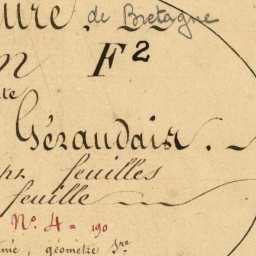 ure de Bretagne
n F²
te
Géraudais.
feuilles
feuille
N°. 4 = 190
mé, géomètre